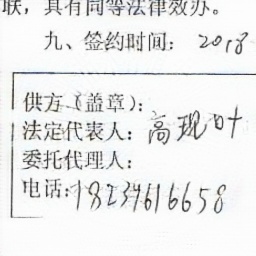 联，具有同等法律效力。
九、签约时间：2018-
供方（盖章）：
法定代表人：高现叶
委托代理人：
电话：18234616658